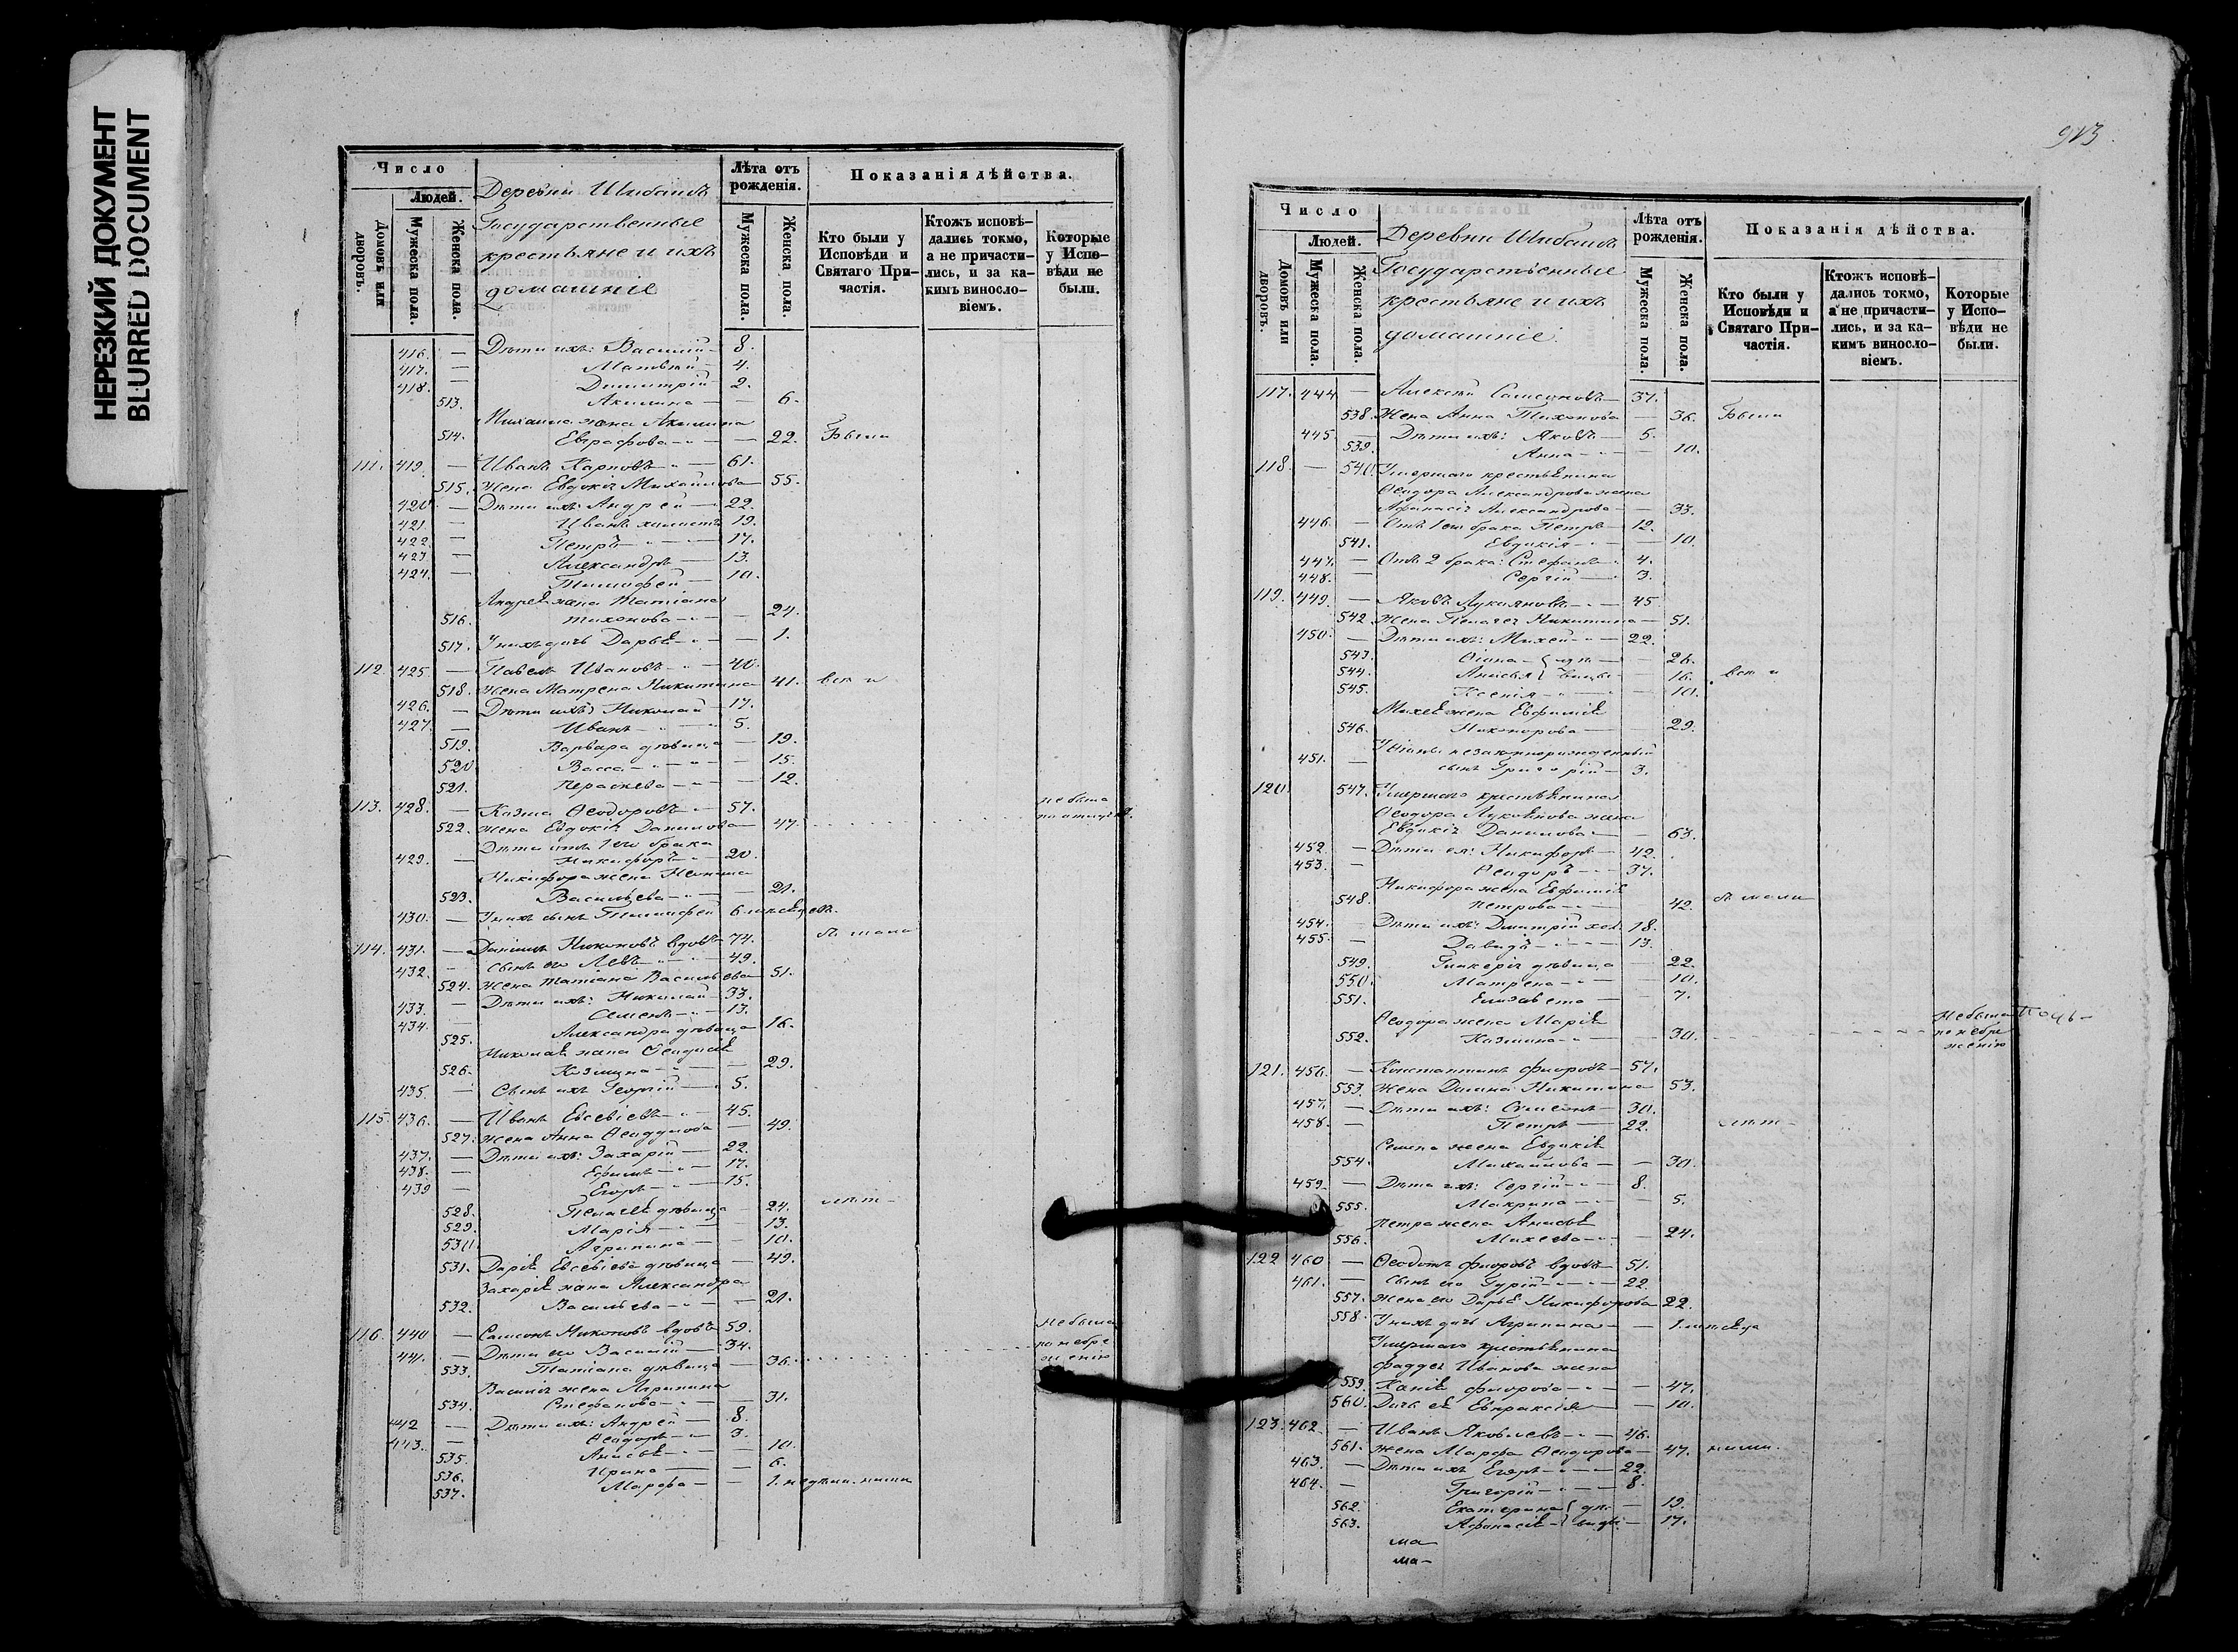 НЕРЕЗКИЙ ДОКУМЕНТ
BLURRED DOCUMENT
Число
Людей.
Домовъ или дворовъ.
Мужеска пола.
Женска пола.
Деревни Шибаинъ
Государственные
крестьяне и ихъ
домашніе
Лѣта отъ рожденія.
Мужеска пола.
Женска пола.
Показанія дѣйства.
Кто были у Исповѣди и Святаго При-частія.
Ктожъ исповѣ-дались токмо, а не причасти-лись, и за ка-кимъ винословіемъ.
Которые у Испо-вѣди не были.
416. — Дѣти ихъ: Василій — 8.
417. — Матвѣй — 4.
418. — Димитрій — 2.
513. Акилина — — 6.
Михаила жена Акилина
514. Евграфова — — 22. Были
111. 419. — Иванъ Карповъ — 61.
515. Жена Евдокія Михайлова 55.
420. — Дѣти ихъ: Андрей — 22.
421. — Иванъ холостъ 19.
422. — Петръ — 17.
423. — Александръ — 13.
424. — Тимофей — 10.
Андрея жена Татіана
516. Тихонова — — 24.
517. У нихъ дочь Дарья — — 1.
112. 425. — Павелъ Ивановъ — 40.
518. Жена Матрена Никитина 41.
426. — Дѣти ихъ: Николай — 17.
427. — Иванъ — 5.
519. Варвара дѣвица — 19.
520. Васса — — 15.
521. Параскева — — 12.
113. 428. — Козма Ѳеодоровъ — 57.
522. Жена Евдокія Данилова — 47. не была
Дѣти отъ 1го брака
429. — Никифоръ — 20.
Никифора жена
523. Васильева — — 21.
430. — У нихъ сынъ Тимофей 6 мѣсяцевъ.
114. 431. — Даніилъ Никоновъ вдовъ 74.
432. — Сынъ его Левъ — 49.
524. Жена Татіана Васильева 51.
433. — Дѣти ихъ: Николай — 33.
434. — Семенъ — 13.
525. Александра дѣвица 16.
Николая жена
526. Козмина — — 29.
435. — Сынъ ихъ Георгій — 5.
115. 436. — Иванъ Евсевіевъ — 45.
527. Жена Анна — 49.
437. — Дѣти ихъ: Захарій — 22.
438. — Ефимъ — 17.
439 — Егоръ — 15.
528. Пелагея дѣвица — 24.
529. Марія — — 13.
530. Агрипина — — 10.
531. Дарія Евсевіева дѣвица — 49.
Захарія жена Александра
532. Васильева — — 21.
116. 440 — Самсонъ Никоновъ вдовъ 59. Не были
441. — Дѣти его Василій — 34. по небре
533. Татіана дѣвица — 36. женію
Василія жена Агрипина
534. Стефанова — — 31.
442 — Дѣти ихъ: Андрей — 8.
443. — Ѳеодоръ — 3.
535. Анисья — — 10.
536. Ирина — — 6.
537. Марфа — — 1.
913
Число
Людей.
Домовъ или дворовъ.
Мужеска пола.
Женска пола.
Деревни Шибаинъ
Государственные
крестьяне и ихъ
домашніе.
Лѣта отъ рожденія.
Мужеска пола.
Женска пола.
Показанія дѣйства.
Кто были у Исповѣди и Святаго При-частія.
Ктожъ исповѣ-дались токмо, а не причасти-лись, и за ка-кимъ винословіемъ.
Которые у Испо-вѣди не были.
117. 444 — Алексѣй Самсоновъ — 37.
538. Жена Анна Тихонова — 36. Были
445. — Дѣти ихъ: Яковъ — 5.
539. Анна — — 10.
118. — 540. Умершаго крестьянина
Ѳеодора Александрова жена
Афанасія Александрова — — 33.
446. — Отъ 1го брака Петръ — 12.
541. Евдокія — — 10.
447. — Отъ 2 брака: Стефанъ — 4.
448. — Сергій — 3.
119. 449. — Яковъ Лукіановъ — 45
542. Жена Пелагея Никитина — 51.
450. — Дѣти ихъ: Михей — 22.
543. — 26.
544. Анисья — 16.
545. Ксенія — — 10.
Михея жена Евфимія
546. Никонорова — — 29.
незаконнорожденный
451. — сынъ Григорій — 3.
120. 547. Умершаго крестьянина
Ѳеодора жена
Евдокія Данилова — — 63.
452. — Дѣти ея: Никифоръ — 42.
453. — Ѳеодоръ — 37.
Никифора жена Евфимія
548. Петрова — — 42.
454. — Дѣти ихъ: Дмитрій хол. 18.
455. — Давидъ — 13.
549. Гликерія дѣвица — 22.
550. Матрена — — 10.
551. Елизавета — — 7.
Ѳеодора жена Марія Не была
552. Козмина — — 30. по небре
женію
121. 456. — Константинъ Флоровъ — 57.
553. Жена Никитина 53.
457. — Дѣти ихъ: Симеонъ — 30.
458. — Петръ — 22.
Семена жена Евдокія
554. Михайлова — — 30.
459. — Дѣти ихъ: Сергій — 8.
555. Макрина — — 5.
Петра жена Анисья
556. Михеева — — 24.
122 460 — Ѳеодотъ Флоровъ вдовъ — 51.
461. — Сынъ его Гурій — 22
557. Жена его Дарья Никифорова 22.
558. У нихъ дочь Агрипина — — 1. мѣсяца
Умершаго крестьянина
Фаддея Иванова жена
559. Флорова — — 47.
560. Дочь ея Евпраксія — — 10.
123. 462 — Иванъ Яковлевъ — 46.
561. Жена Марфа Ѳеодорова — 47.
463. — Дѣти ихъ Егоръ — 22.
464. — Григорій — 8.
562. Екатерина — 19.
563. Афанасія — 17.